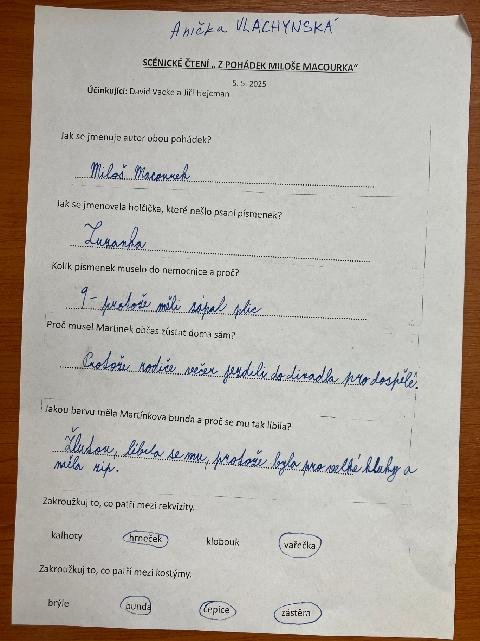 Anička VLACHYNSKÁ
SCÉNICKÉ ČTENÍ „ Z POHÁDEK MILOŠE MACOURKA“
5. 5. 2025
Účinkující: David Vacke a Jiří Hejcman
Jak se jmenuje autor obou pohádek?
Miloš Macourek
Jak se jmenovala holčička, které nešlo psaní písmenek?
Zuzanka
Kolik písmenek muselo do nemocnice a proč?
9 - protože měli zápal plic
Proč musel Martínek občas zůstat doma sám?
Protože rodiče večer jezdili do divadla pro dospělé.
Jakou barvu měla Martínkova bunda a proč se mu tak líbila?
Žlutou, líbila se mu, protože byla pro velké kluky a
měla zip.
Zakroužkuj to, co patří mezi rekvizity.
kalhoty hrneček klobouk vařečka
Zakroužkuj to, co patří mezi kostýmy.
brýle bunda čepice zástěra